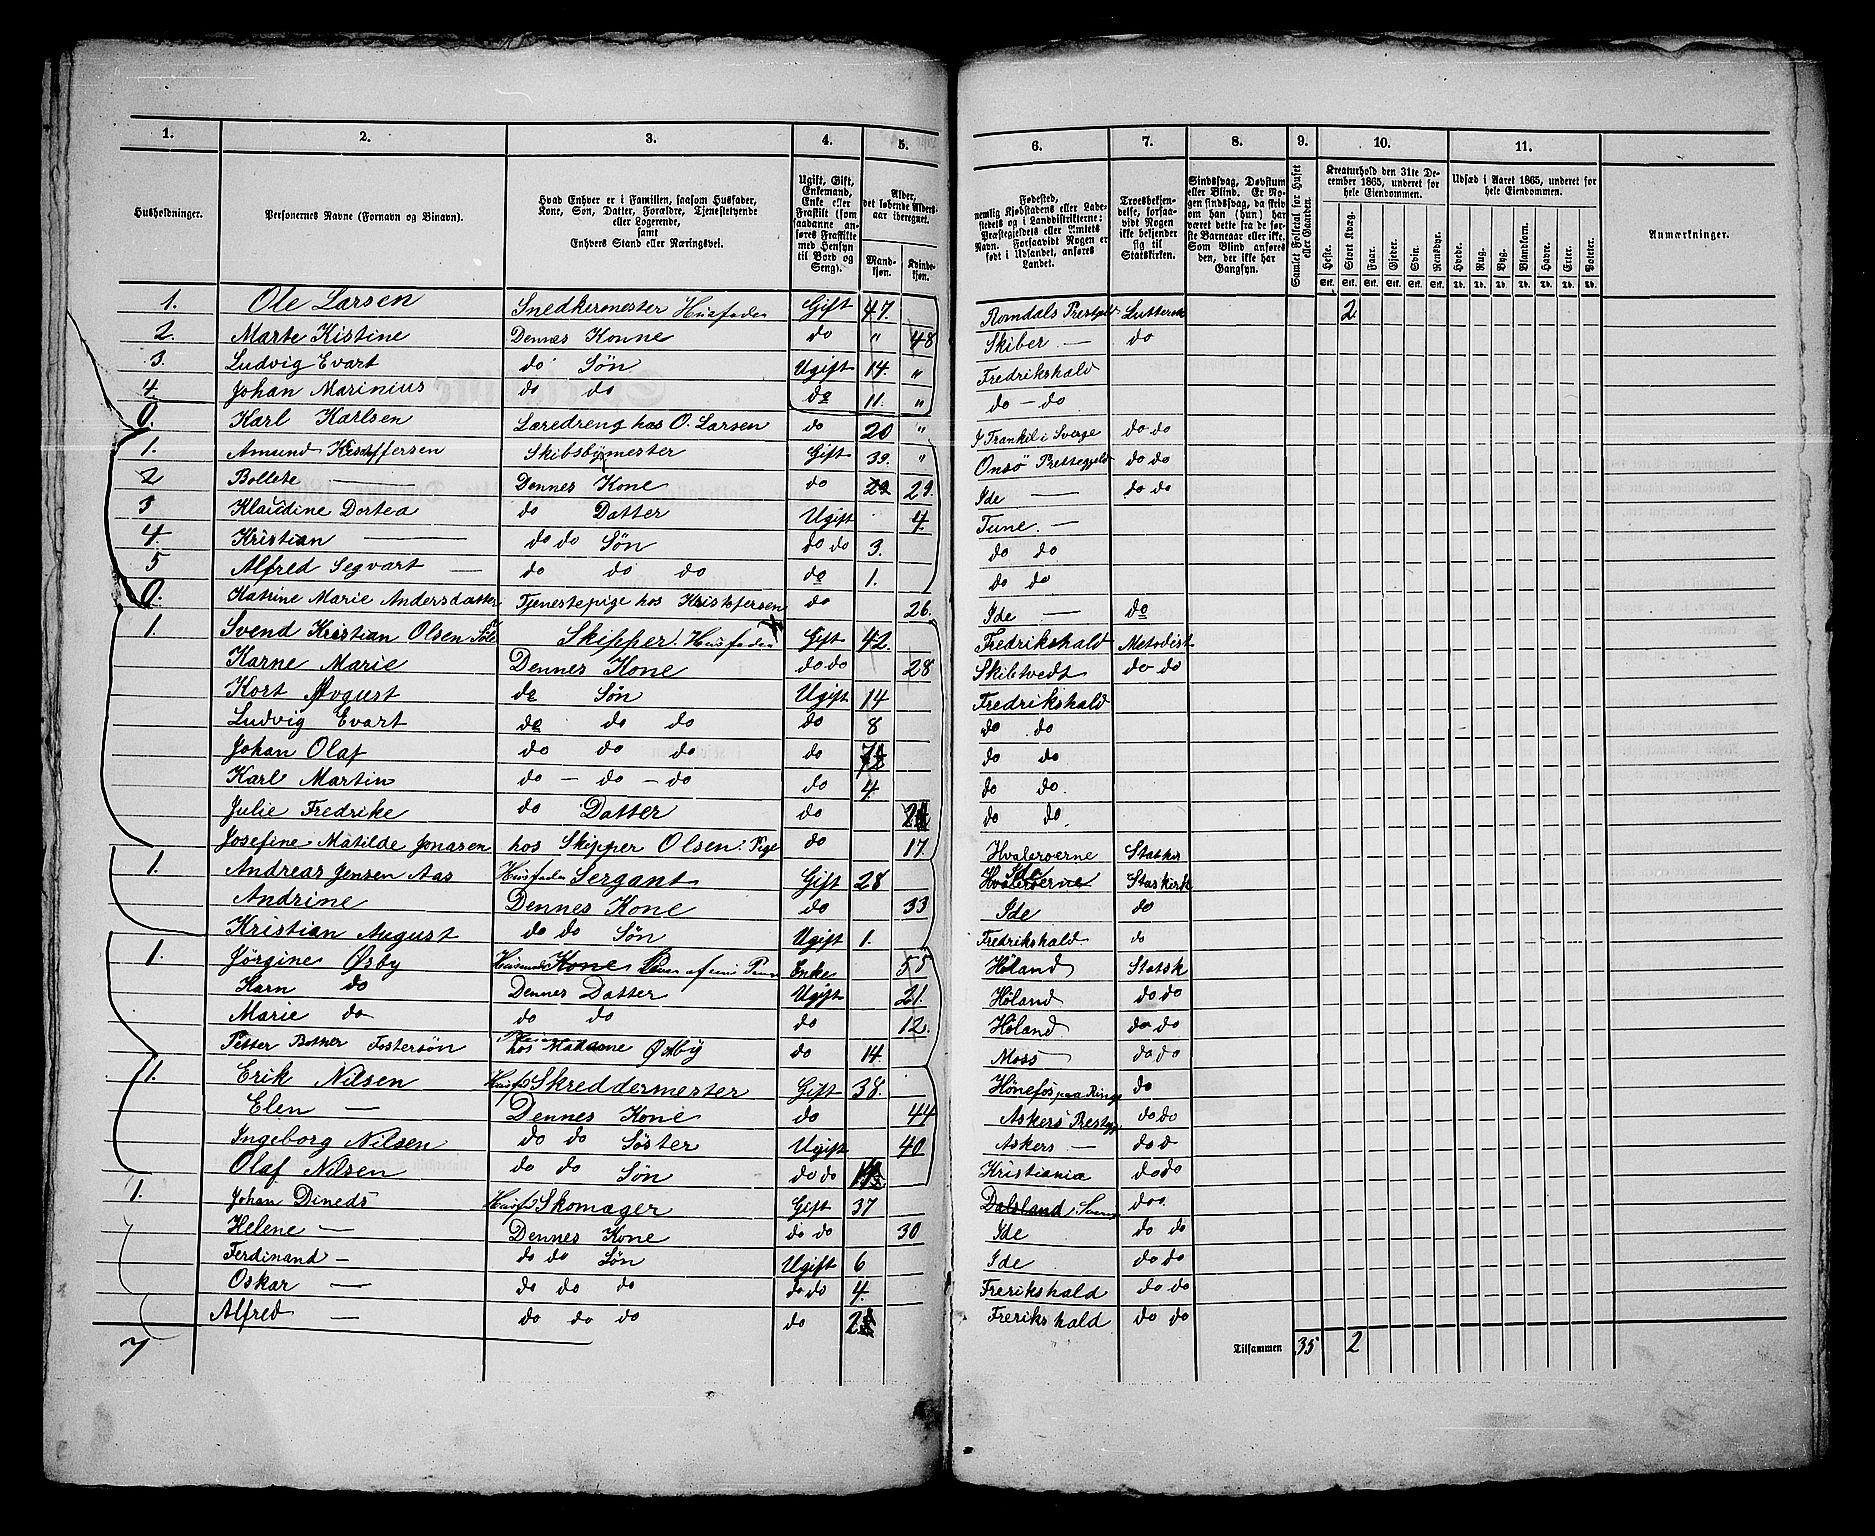 1. 2. 3. 4. 5. 6. 7. 8. 9. 10. 11.
Husholdninger.
Personernes Navne (Fornavn og Binavn).
Hvad Enhver er i Familien, saasom Husfader, Kone, Søn, Datter, Forældre, Tjenestetyende eller Logerende, samt Enhvers Stand eller Næringsvei.
Ugift, Gift, Enkemand, Enke eller Fraskilt (som saadanne anføres Fraskilte med Hensyn til Bord og Seng).
Alder, det løbende Alders-aar iberegnet.
Mand-kjøn. Kvinde-kjøn.
Fødested, nemlig Kjøbstadens eller Ladestedets og i Landdistrikterne: Præstegjeldets eller Amtets Navn. Forsaavidt Nogen er født i Udlandet, anføres Landet.
Troesbekjendelse, forsaavidt Nogen ikke bekjender sig til Statskirken.
Sindssvag, Døvstum eller Blind. Er Nogen sindssvag, da skrives om han (hun) har været dette fra de første Barneaar eller ikke. Som Blind anføres den, der ikke har Gangsyn.
Samlet Folketal for Huset eller Gaarden.
Kreaturhold den 31te December 1865, underet for hele Eiendommen.
Heste. Stort Kvæg. Faar. Gjeder. Svin. Rensdyr.
Stk. Stk. Stk. Stk. Stk. Stk.
Udsæd i Aaret 1865, underet for hele Eiendommen.
Hvede. Rug. Byg. Blandkorn. Havre. Erter. Poteter.
Td. Td. Td. Td. Td. Td. Td.
Anmærkninger.
1. Ole Larsen Snedkermester Husfader Gift 47. Romdals Lutters 2
2. Marte Kistine Dennes Konne do " 48 Skiber — do
3. Ludvig Evart do Søn Ugift 14. " Fredrikshald
4 Johan Marinius do do do 11. " do - do
0. Karl Karlsen Læredreng hos O. Larsen do 20 " I Trankil i Sverge do do
1. Amund Skibsbymester Gift 39. " Onsö do do
2 Bollete — Dennes Kone do 29. Ide — do do
3 Klaudine Dortea do Datter Ugift 4. Tune. —
4. Kristian — do do Søn do do 3. do do
5 Alfred Segvart — do do do do 1. do do
0. Katrine Marie Andersdatter Tjenestepige hos Kristofersen do 26. Ide — do
1. Svend Kristian Olsen Skipper. Husfader Gift 42. Fredrikshald Metodist
Karne Marie Dennes Kone do do 28 Skibtvedt do do
Kort Avgust do Søn Ugift 14 Fredrikshald
Ludvig Evart do do do do 8 do do
Johan Olaf do do do do do do
Karl Martin do - do - do do 4. do do.
Julie Fredrike do Datter do do do
Josefine Matilde Jonasen hos Skipper Olsen: Pige do 17. Hvaleroerne
1. Andreas Jensen Aas Husfader Sergant Gift 28 Hvaleroerne Ide Staskirk
Andrine Dennes Kone do 33 Ide do
Kristian August do do Søn Ugift 1. Fredrikshald do
1. Jörgine Øsby Kone Enke 55 Høland Statsk
Karn do Dennes Datter Ugift 21. Høland do do
Marie do do do do 12. Höland do do
Petter Fostersön hos Madame Østby do 14. Moss do do
1. Erik Nilsen Husf Skreddermester Gift 38. Hönefos paa Ringe do
Elen — Dennes Kone do 44 Askers Prestgj do do
Ingeborg Nilsen do do Søster Ugift 40 Askers — do d
Olaf Nilsen do do Søn do do Kristiania do do
1. Johan Dineds Husf Skomager Gift 37 Dalsland Sverig do
Helene — Dennes Kone do do 30 Ide do do
Ferdinand — do do Søn Ugift 6 Ide do do
Oskar — do do do do do 4. Frerikshald do do
Alfred — do do do do Frerikshald do do
7 Tilsammen 35 2